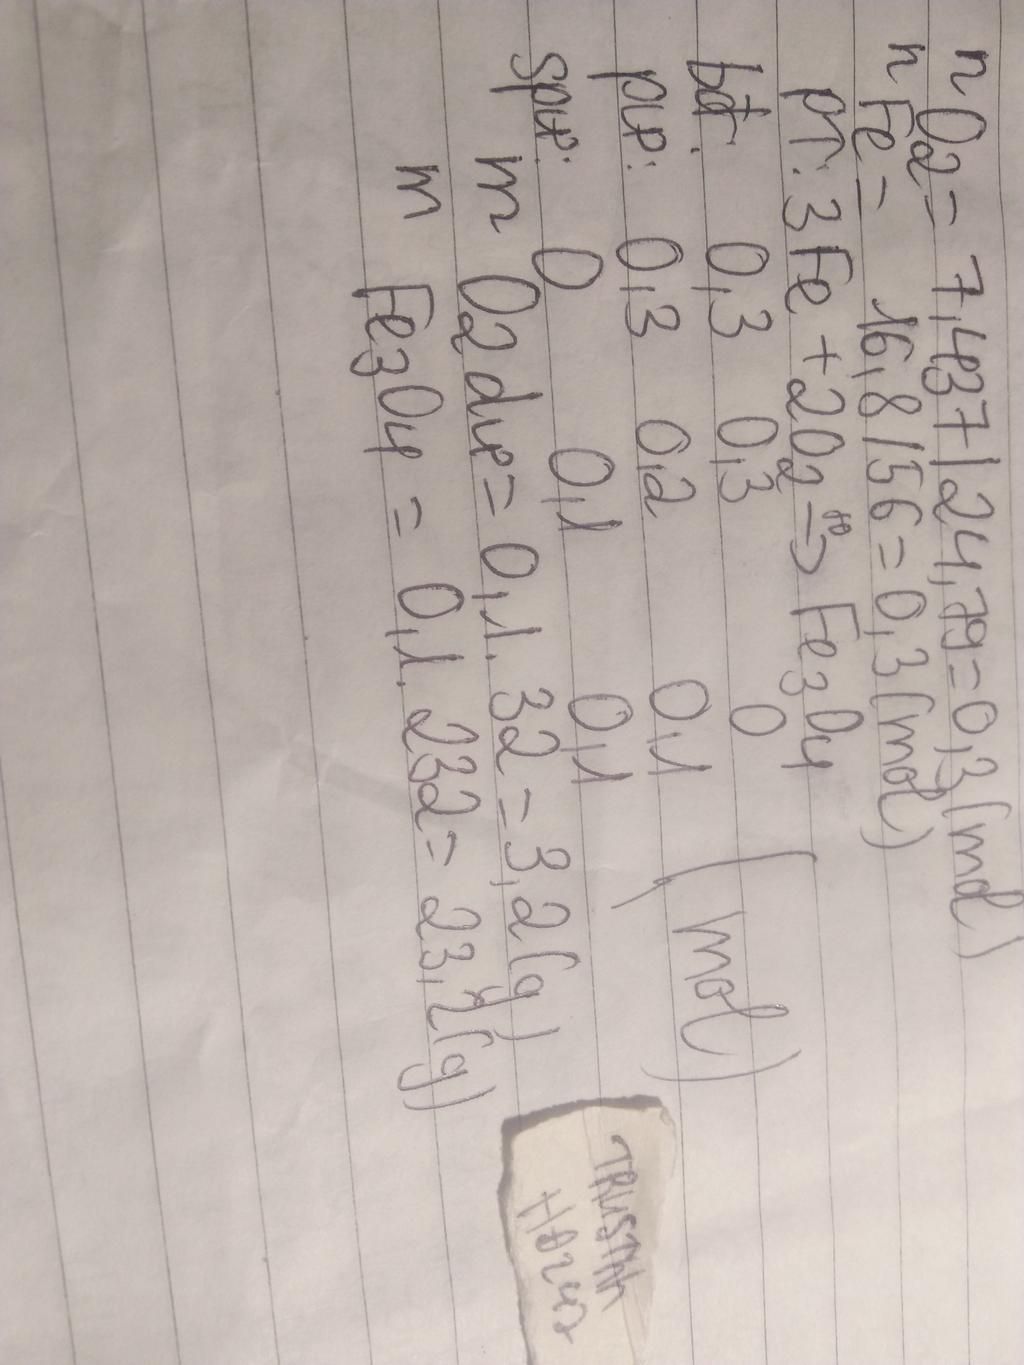 nO2 = 7,437/24,79=0,3(mol)
nFe = 16,8/56=0,3(mol)
pt: 3Fe + 2O2 -t°-> Fe3O4
bđ: 0,3 0,3 0
pư: 0,3 0,2 0,1 (mol)
spư: 0 0,1 0,1
m O2 dư = 0,1. 32 = 3,2(g)
m Fe3O4 = 0,1. 232= 23,2(g)